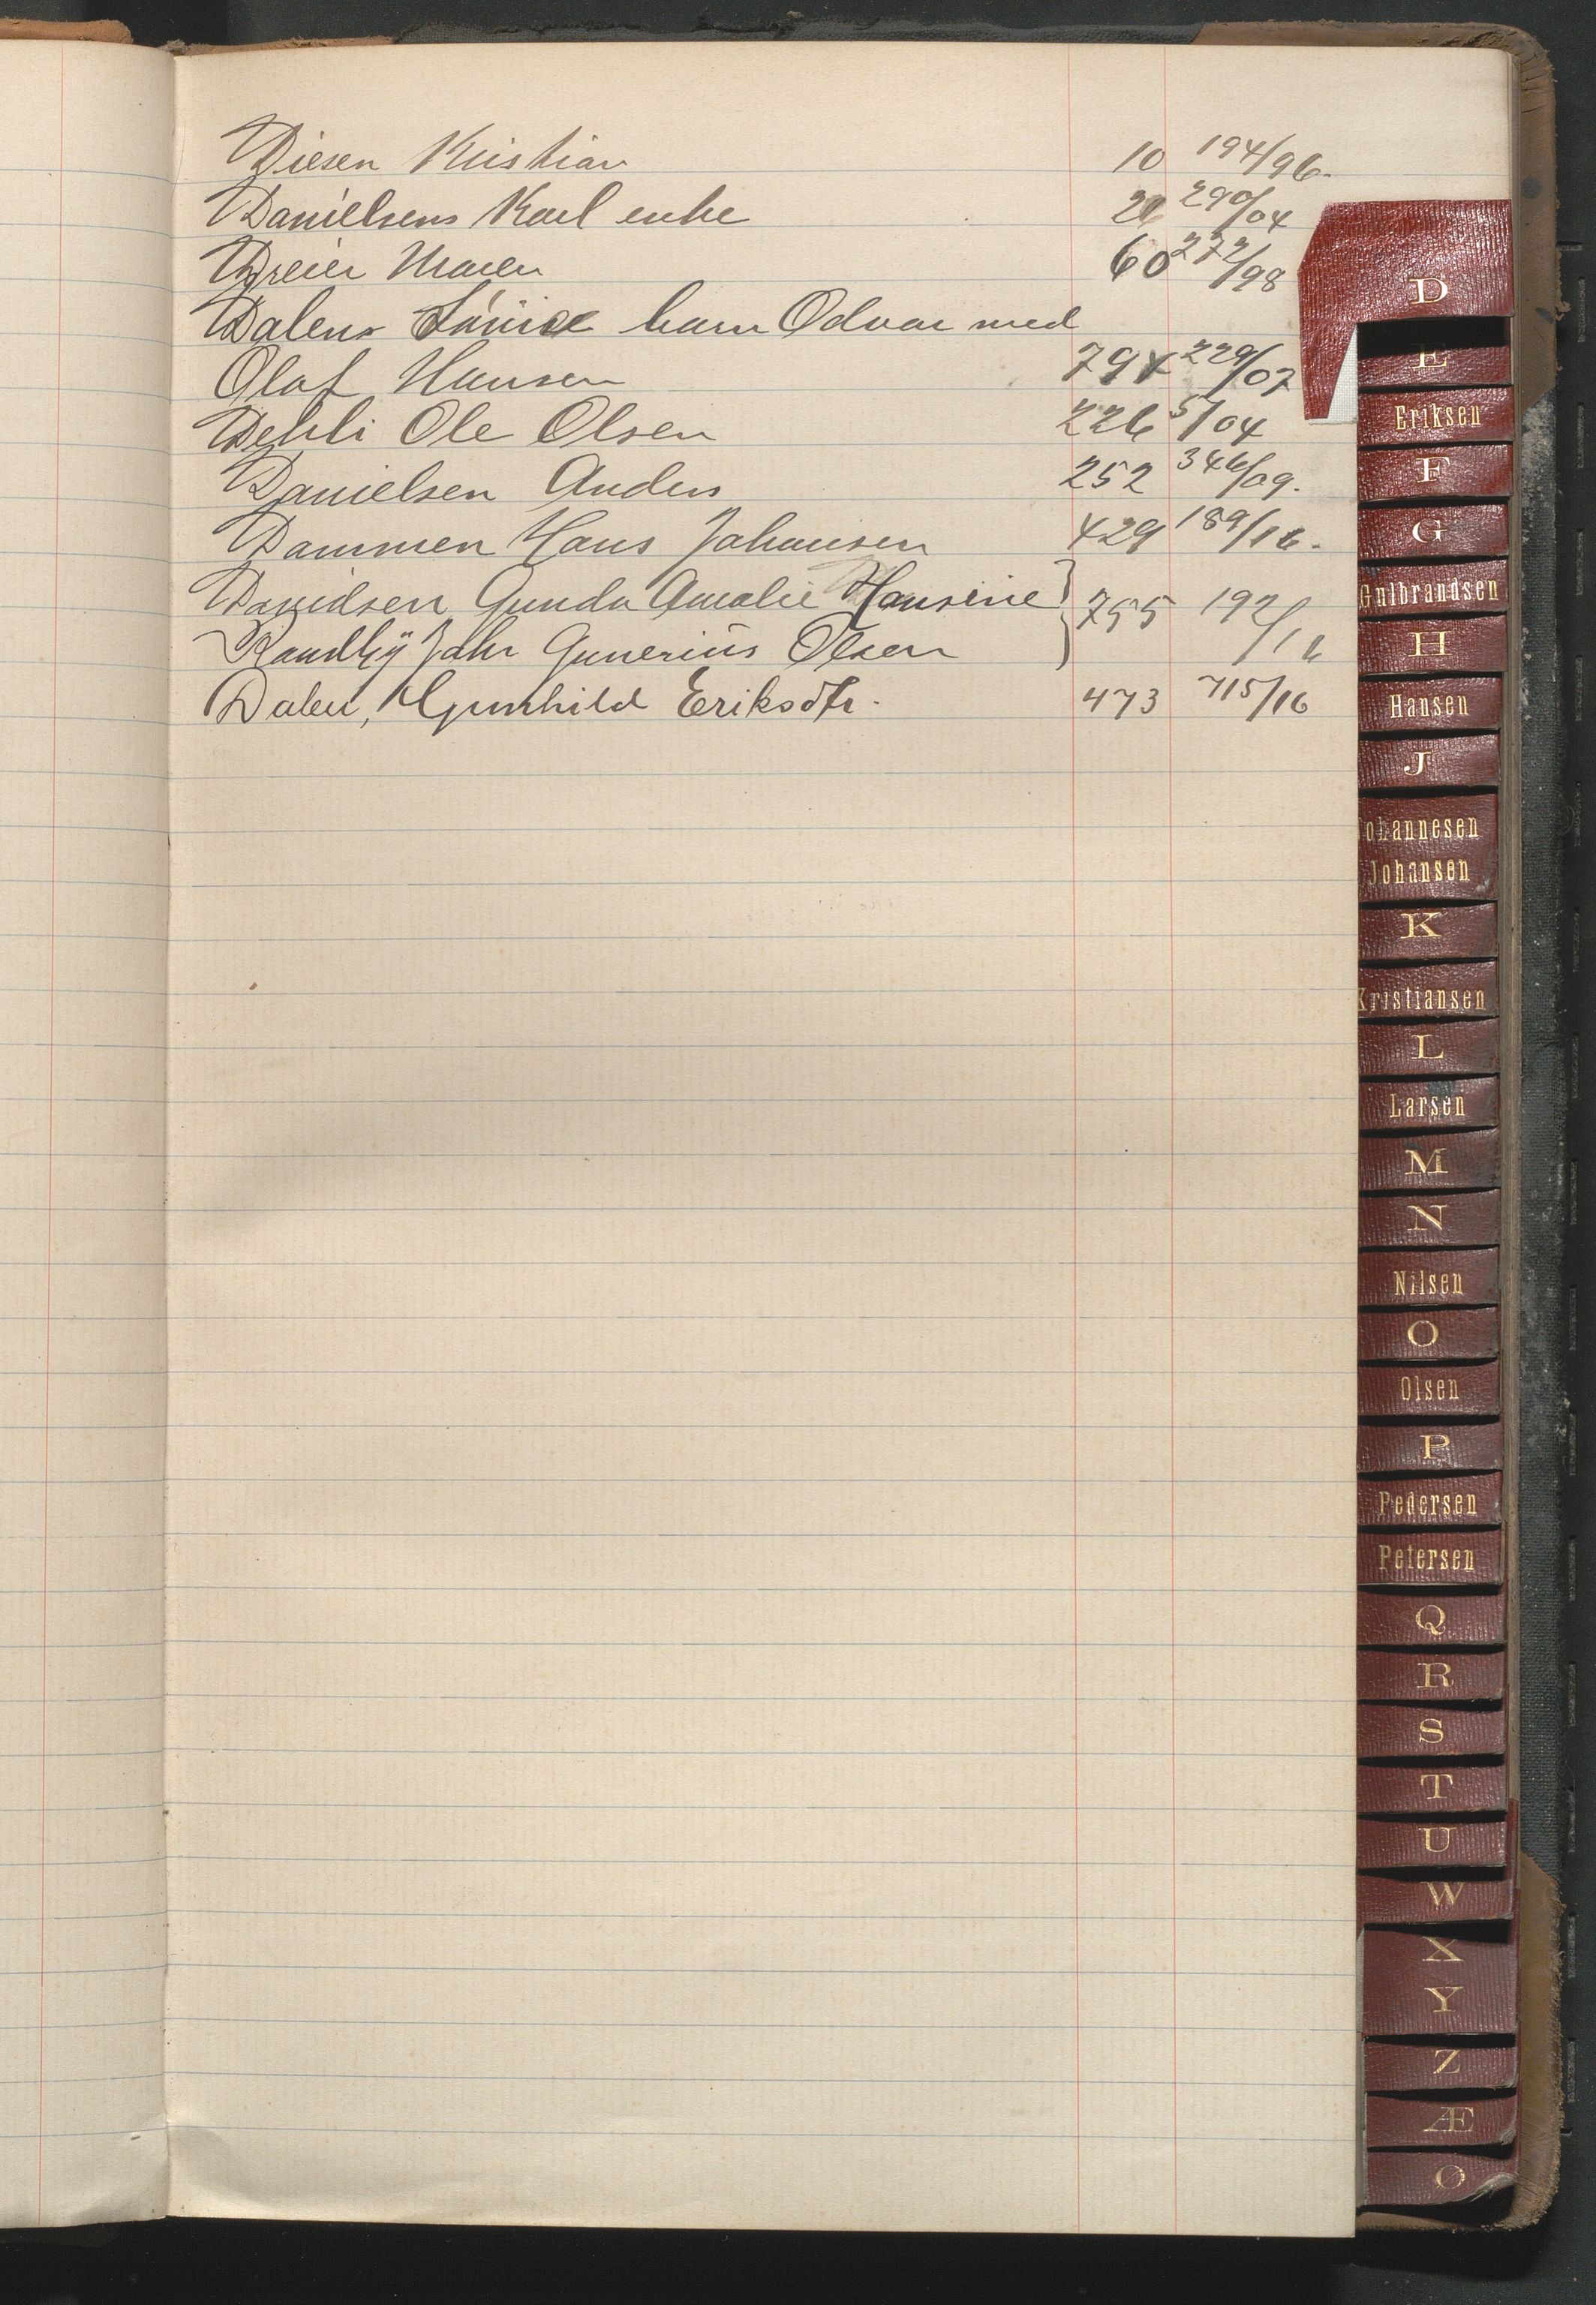 Diesen Kristian 10 194/96.
Danielsens Karl enke 20 290/04
Dreier Maren 60 272/98
Dalens Lovise barn Odvar med
Olaf Hansen 794 229/07
Dehli Ole Olsen 226 5/04
Danielsen Anders 252 346/09.
Dammen Hans Johansen 429 189/16.
Davidsen Gunda Amalie Hansine } 755 192/16
Randby Jahr Gunerius Olsen
Dalen, Gunhild Eriksdtr. 473 715/16
D
E
Eriksen
F
G
Gulbrandsen
H
Hansen
J
Johannesen
Johansen
K
Kristiansen
L
Larsen
M
N
Nilsen
O
Olsen
P
Pedersen
Petersen
Q
R
S
T
U
W
X
Y
Z
Æ
Ø